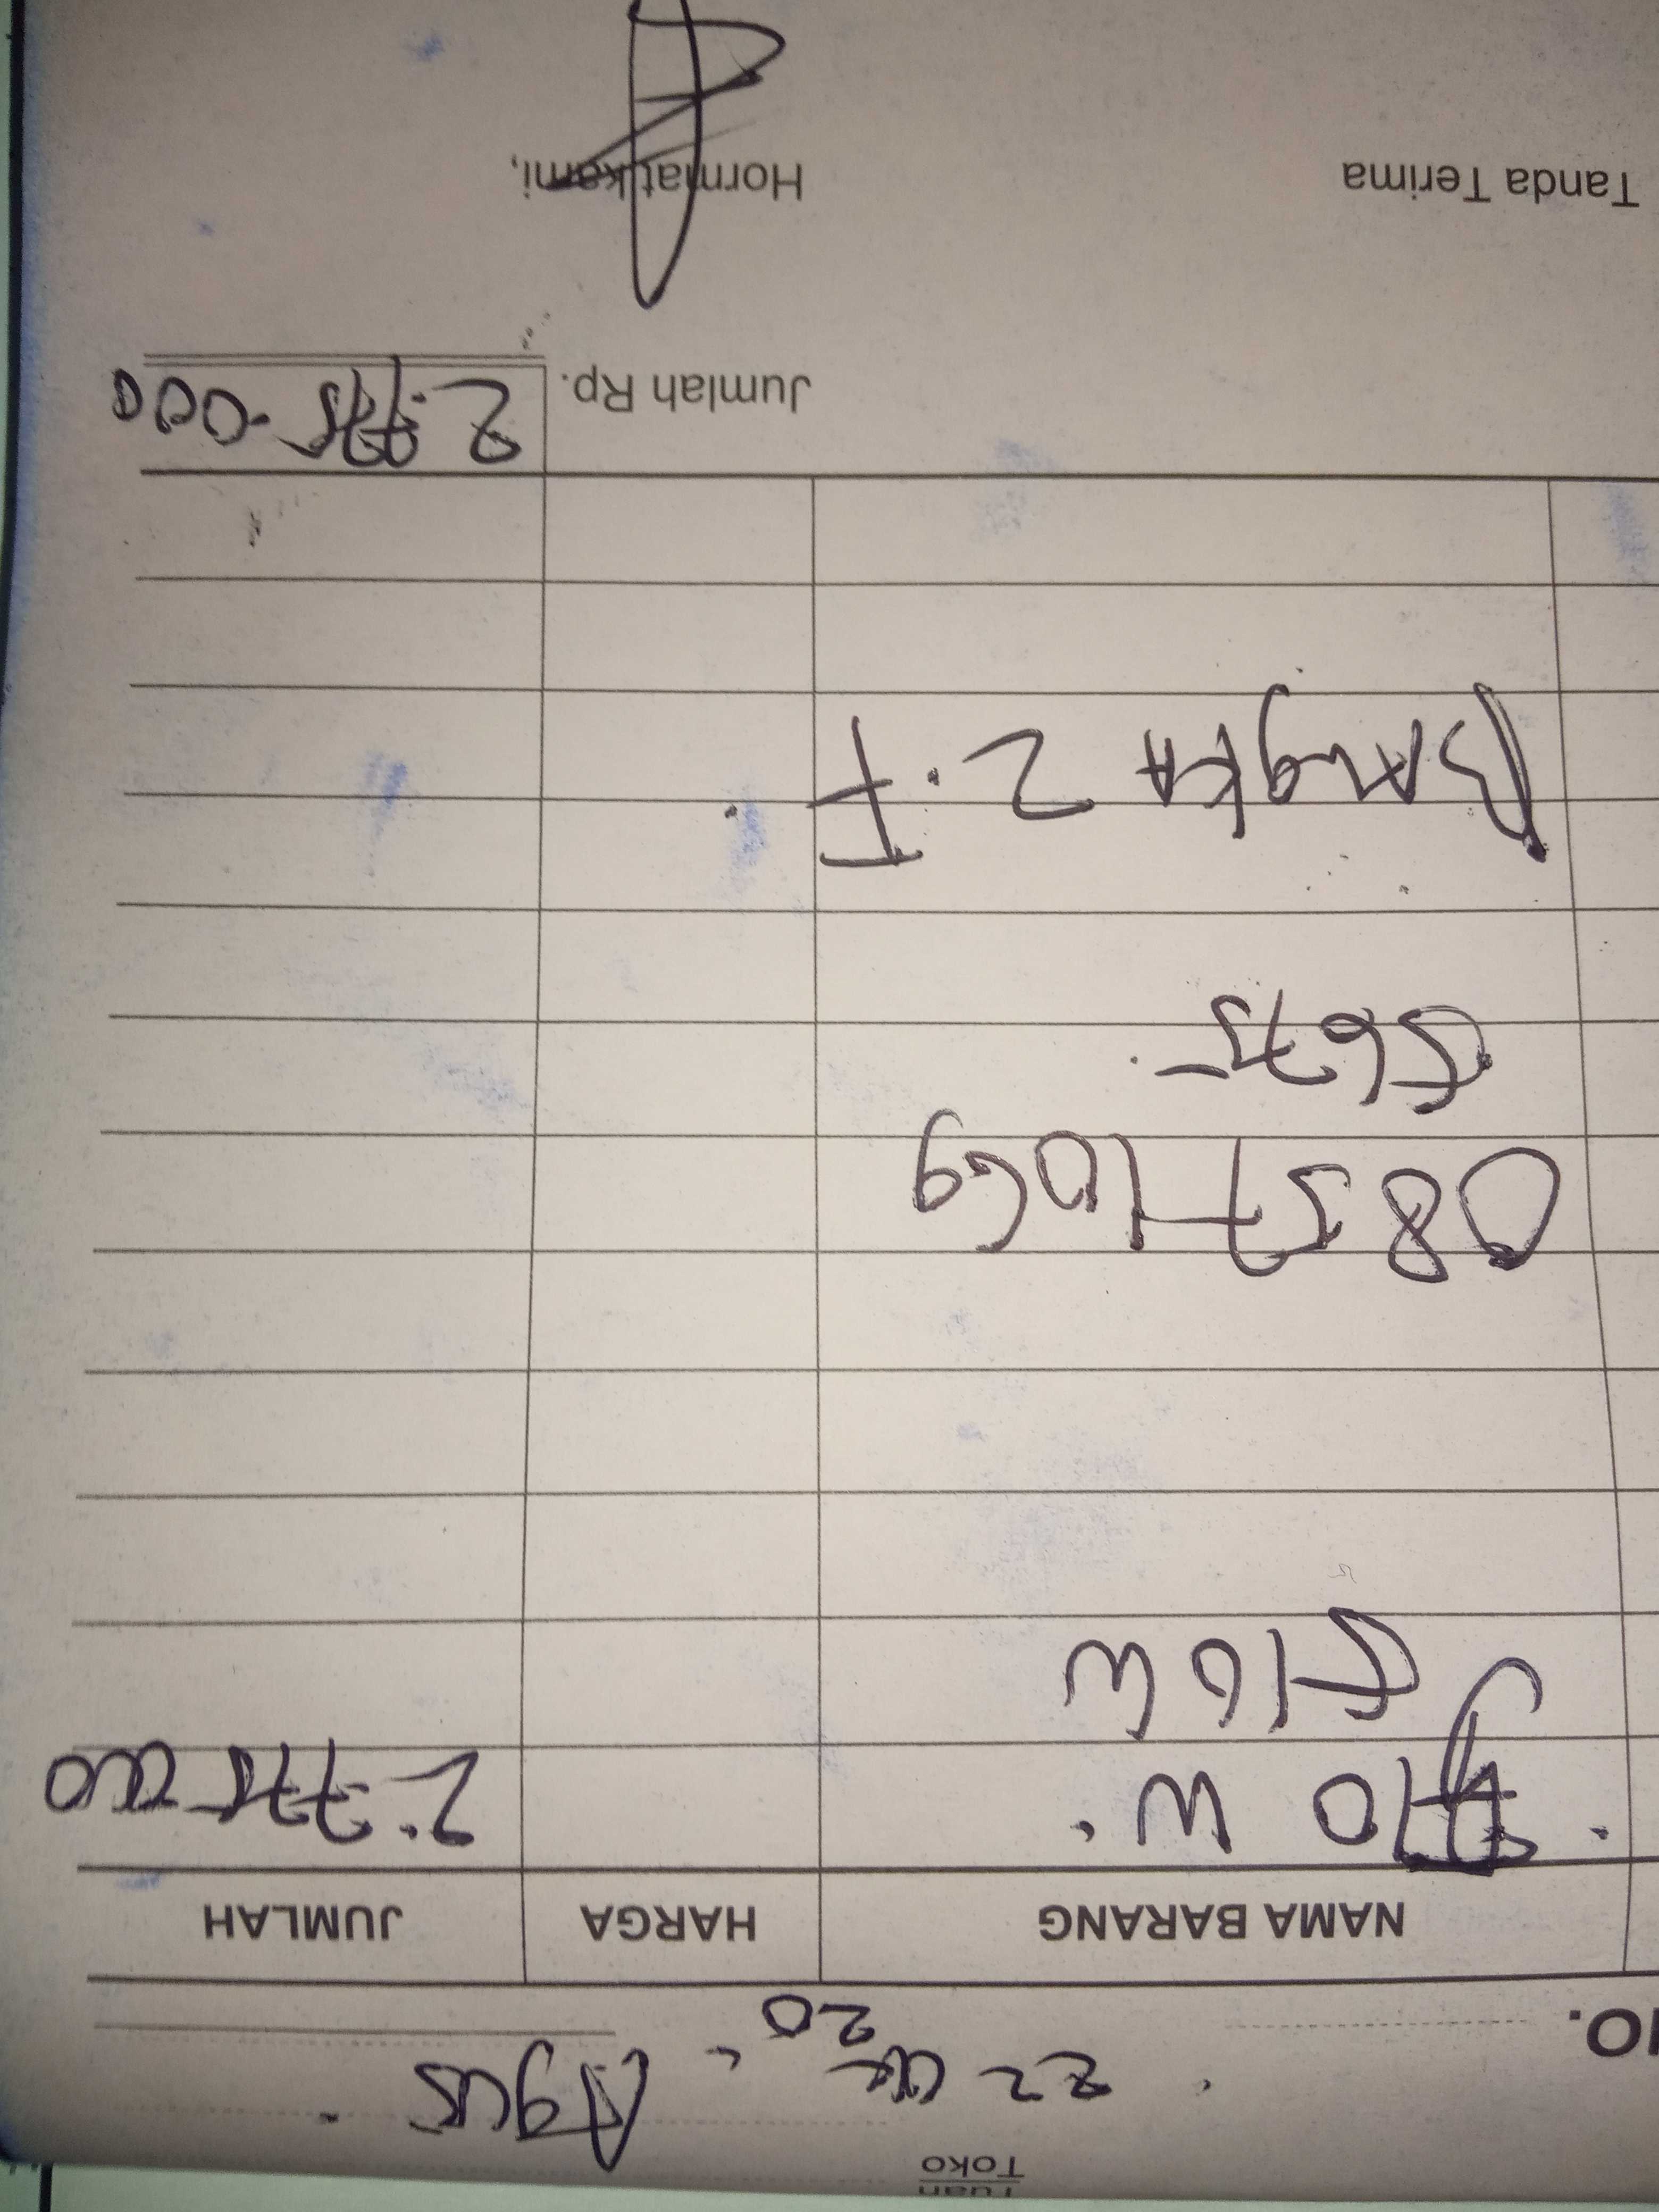 Tuan
Toko
22 Okt 20 Agus
NO.
NAMA BARANG HARGA JUMLAH
2.775 000
0857 1069
5675
BAngkA 2. F
Jumlah Rp. 2.775.000
Tanda Terima Hormat kami,